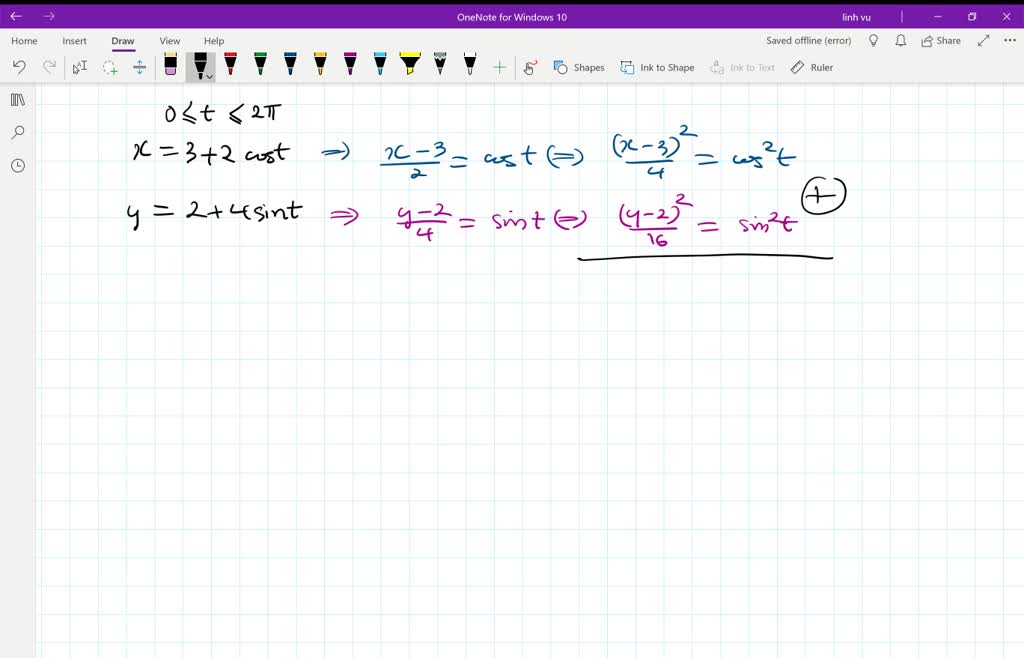 OneNote for Windows 10
linh vu
Home Insert Draw View Help
Saved offline (error)
Share
Shapes
Ink to Shape
Ink to Text
Ruler
0 ⩽ t ⩽ 2π
x = 3 + 2 cost ⇒ (x − 3)/2 = cost ⇔ (x − 3)²/4 = cos²t
y = 2 + 4 sint ⇒ (y − 2)/4 = sint ⇔ (y − 2)²/16 = sin²t ⊕